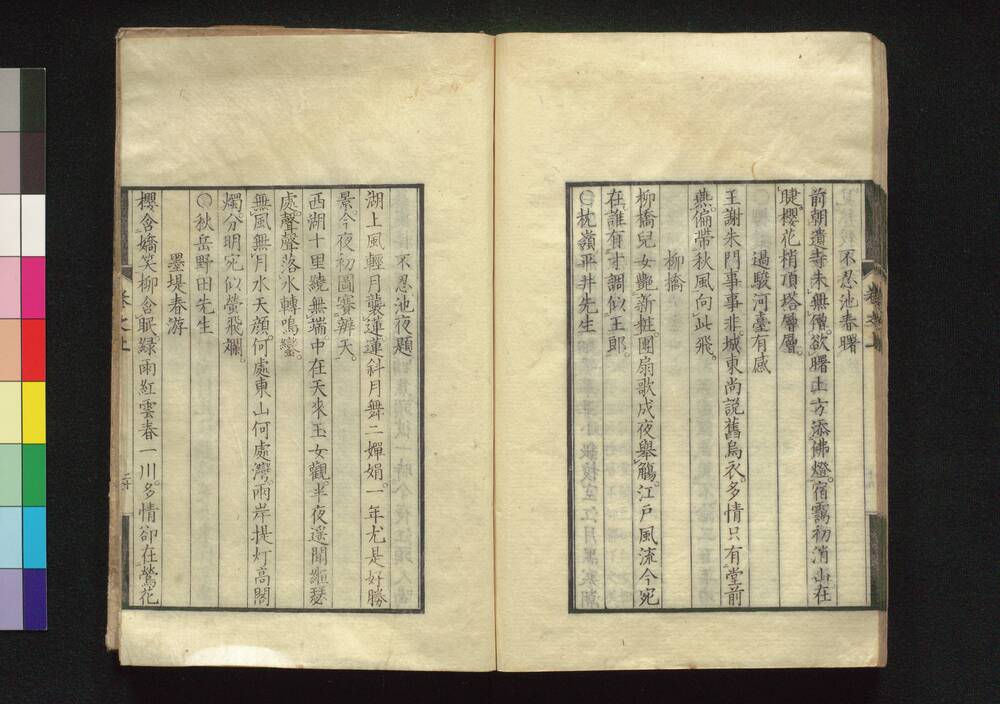 不忍池春曙
前朝遺寺未無僧。欲曙上方添佛燈。宿靄初消山在
睫。櫻花梢頂塔層層。
過駿河臺有感
王謝朱門事事非。城東尚說舊烏衣。多情只有堂前
燕。偏帶秋風向此飛。
柳橋
柳橋兒女艷新粧。團扇歌成夜舉觴。江戶風流今宛
在。誰有才調似王郎。
〇枕嶺平井先生
不忍池夜題
湖上風輕月襲蓮。蓮斜月舞二嬋娟。一年尤是好勝
景。今夜初圓賽辨天。
西湖十里繞無端。中在天來玉女觀。半夜遥聞絙瑟
處。聲聲落水轉鳴鑾。
無風無月水天顔。何處東山何處灣。兩岸提灯高閣
燭。分明宛似螢飛斕。
〇秋岳野田先生
墨堤春游
櫻含嬌笑柳含眠。綠雨紅雲春一川。多情卻在鶯花